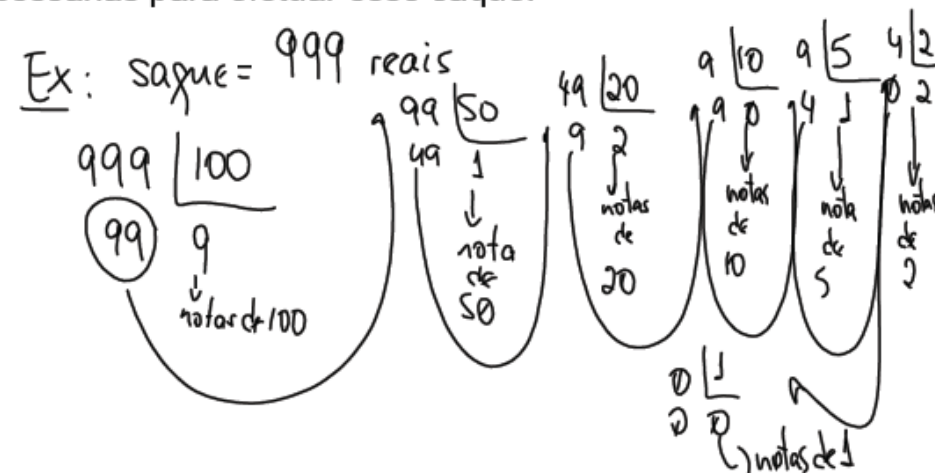 Ex: saque = 999 reais
999 | 100
99 9
notas de 100
99 | 50
49 1
nota
de
50
49 | 20
9 2
notas
de
20
9 | 10
9 0
notas
de
10
9 | 5
4 1
nota
de
5
4 | 2
0 2
notas
de
2
0 | 1
0 0
notas de 1